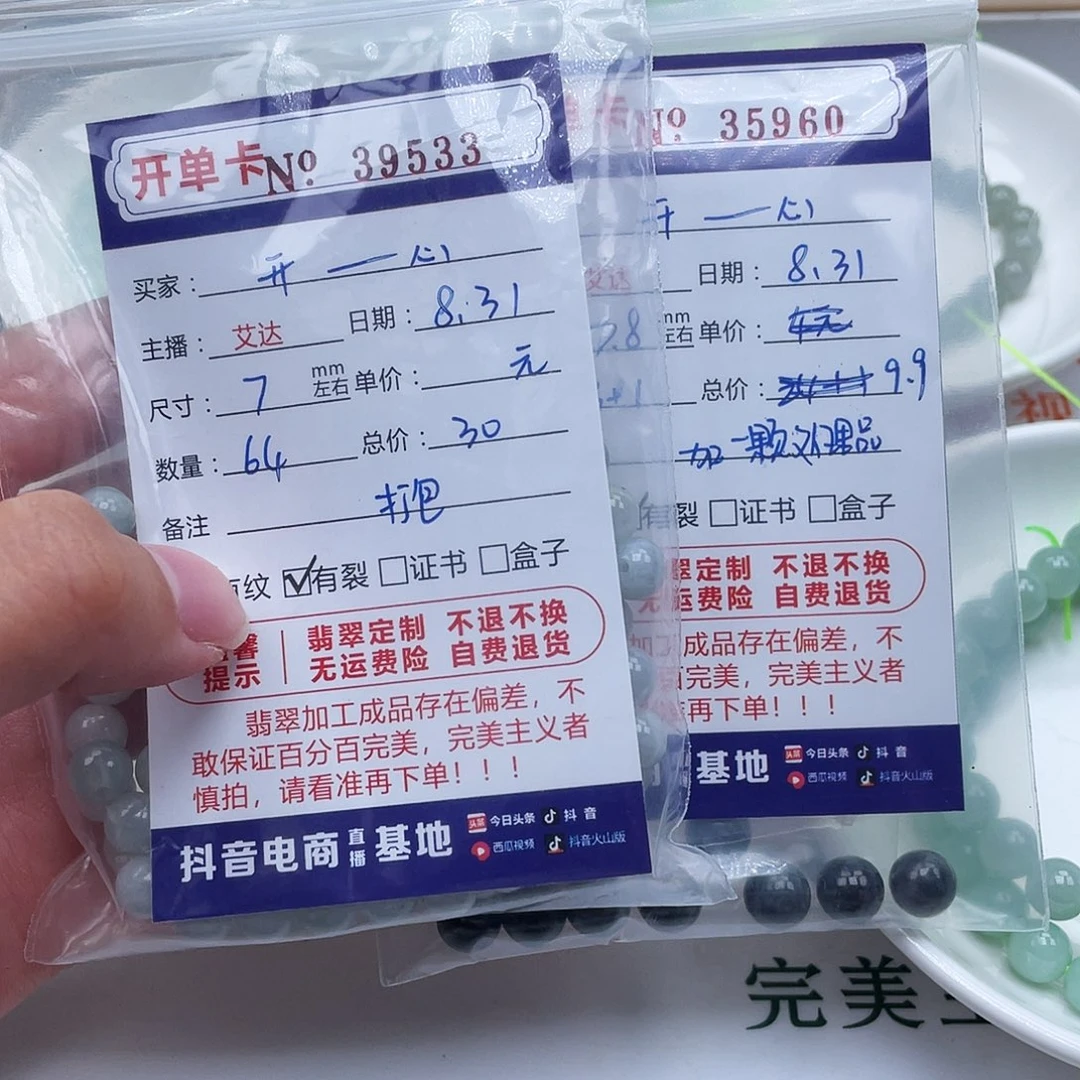 开单卡 Nº 39533
买家： 开 — 心
主播： 艾达 日期： 8.31
尺寸： 7 mm左右 单价： 元
数量： 64 总价： 30
备注 打包
有纹 ☑有裂 □证书 □盒子
温馨提示 翡翠定制 不退不换
无运费险 自费退货
翡翠加工成品存在偏差，不
敢保证百分百完美，完美主义者
慎拍，请看准再下单！！！
抖音电商直播基地 今日头条 抖音
西瓜视频 抖音火山版
Nº 35960
开 — 心
艾达 日期： 8.31
7.8 mm左右 单价：
+1 总价： 9.9
加一颗处理品
有裂 □证书 □盒子
翠定制 不退不换
无运费险 自费退货
加工成品存在偏差，不
百完美，完美主义者
再下单！！！
基地 今日头条 抖音
西瓜视频 抖音火山版
完美主